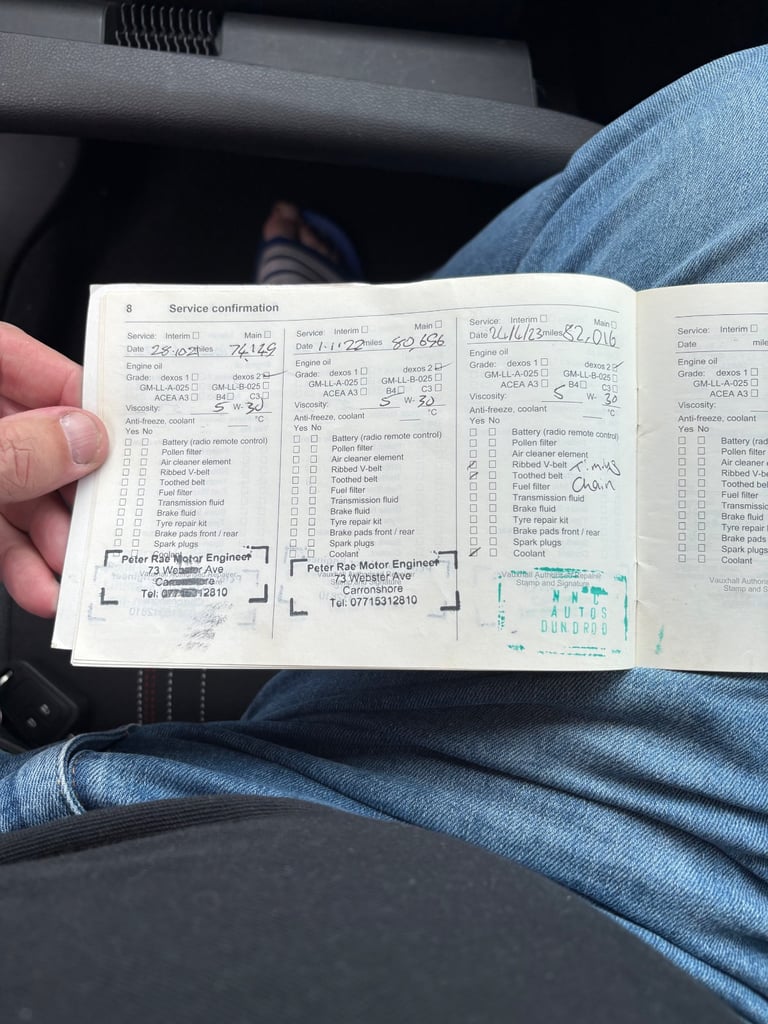 8 Service confirmation
Service: Interim Main
Date 28.10.21 miles 74,149
Engine oil
Grade: dexos 1 dexos 2
GM-LL-A-025 GM-LL-B-025
ACEA A3 B4 C3
Viscosity: 5 W- 30
Anti-freeze, coolant °C
Yes No
Battery (radio remote control)
Pollen filter
Air cleaner element
Ribbed V-belt
Toothed belt
Fuel filter
Transmission fluid
Brake fluid
Tyre repair kit
Brake pads front / rear
Spark plugs
Coolant
Peter Rae Motor Engineer
73 Webster Ave
Carronshore
Tel: 07715312810
Service: Interim Main
Date 1.1.22 miles 80,696
Engine oil
Grade: dexos 1 dexos 2
GM-LL-A-025 GM-LL-B-025
ACEA A3 B4 C3
Viscosity: 5 W- 30
Anti-freeze, coolant °C
Yes No
Battery (radio remote control)
Pollen filter
Air cleaner element
Ribbed V-belt
Toothed belt
Fuel filter
Transmission fluid
Brake fluid
Tyre repair kit
Brake pads front / rear
Spark plugs
Coolant
Peter Rae Motor Engineer
73 Webster Ave
Carronshore
Tel: 07715312810
Service: Interim Main
Date miles 82,016
Engine oil
Grade: dexos 1 dexos 2
GM-LL-A-025 GM-LL-B-025
ACEA A3 B4 C3
Viscosity: 5 W- 30
Anti-freeze, coolant °C
Yes No
Battery (radio remote control)
Pollen filter
Air cleaner element
Ribbed V-belt Timing
Toothed belt Chain
Fuel filter
Transmission fluid
Brake fluid
Tyre repair kit
Brake pads front / rear
Spark plugs
Coolant
Vauxhall Authorised Repairer
Stamp and Signature
N N C
AUTOS
DUNDROD
Service: Interim
Date mile
Engine oil
Grade: dexos 1
GM-LL-A-025
ACEA A3
Viscosity:
Anti-freeze, coolant
Yes No
Battery (rad
Pollen filter
Air cleaner e
Ribbed V-be
Toothed bel
Fuel filter
Transmission
Brake fluid
Tyre repair k
Brake pads f
Spark plugs
Coolant
Vauxhall Authoris
Stamp and S